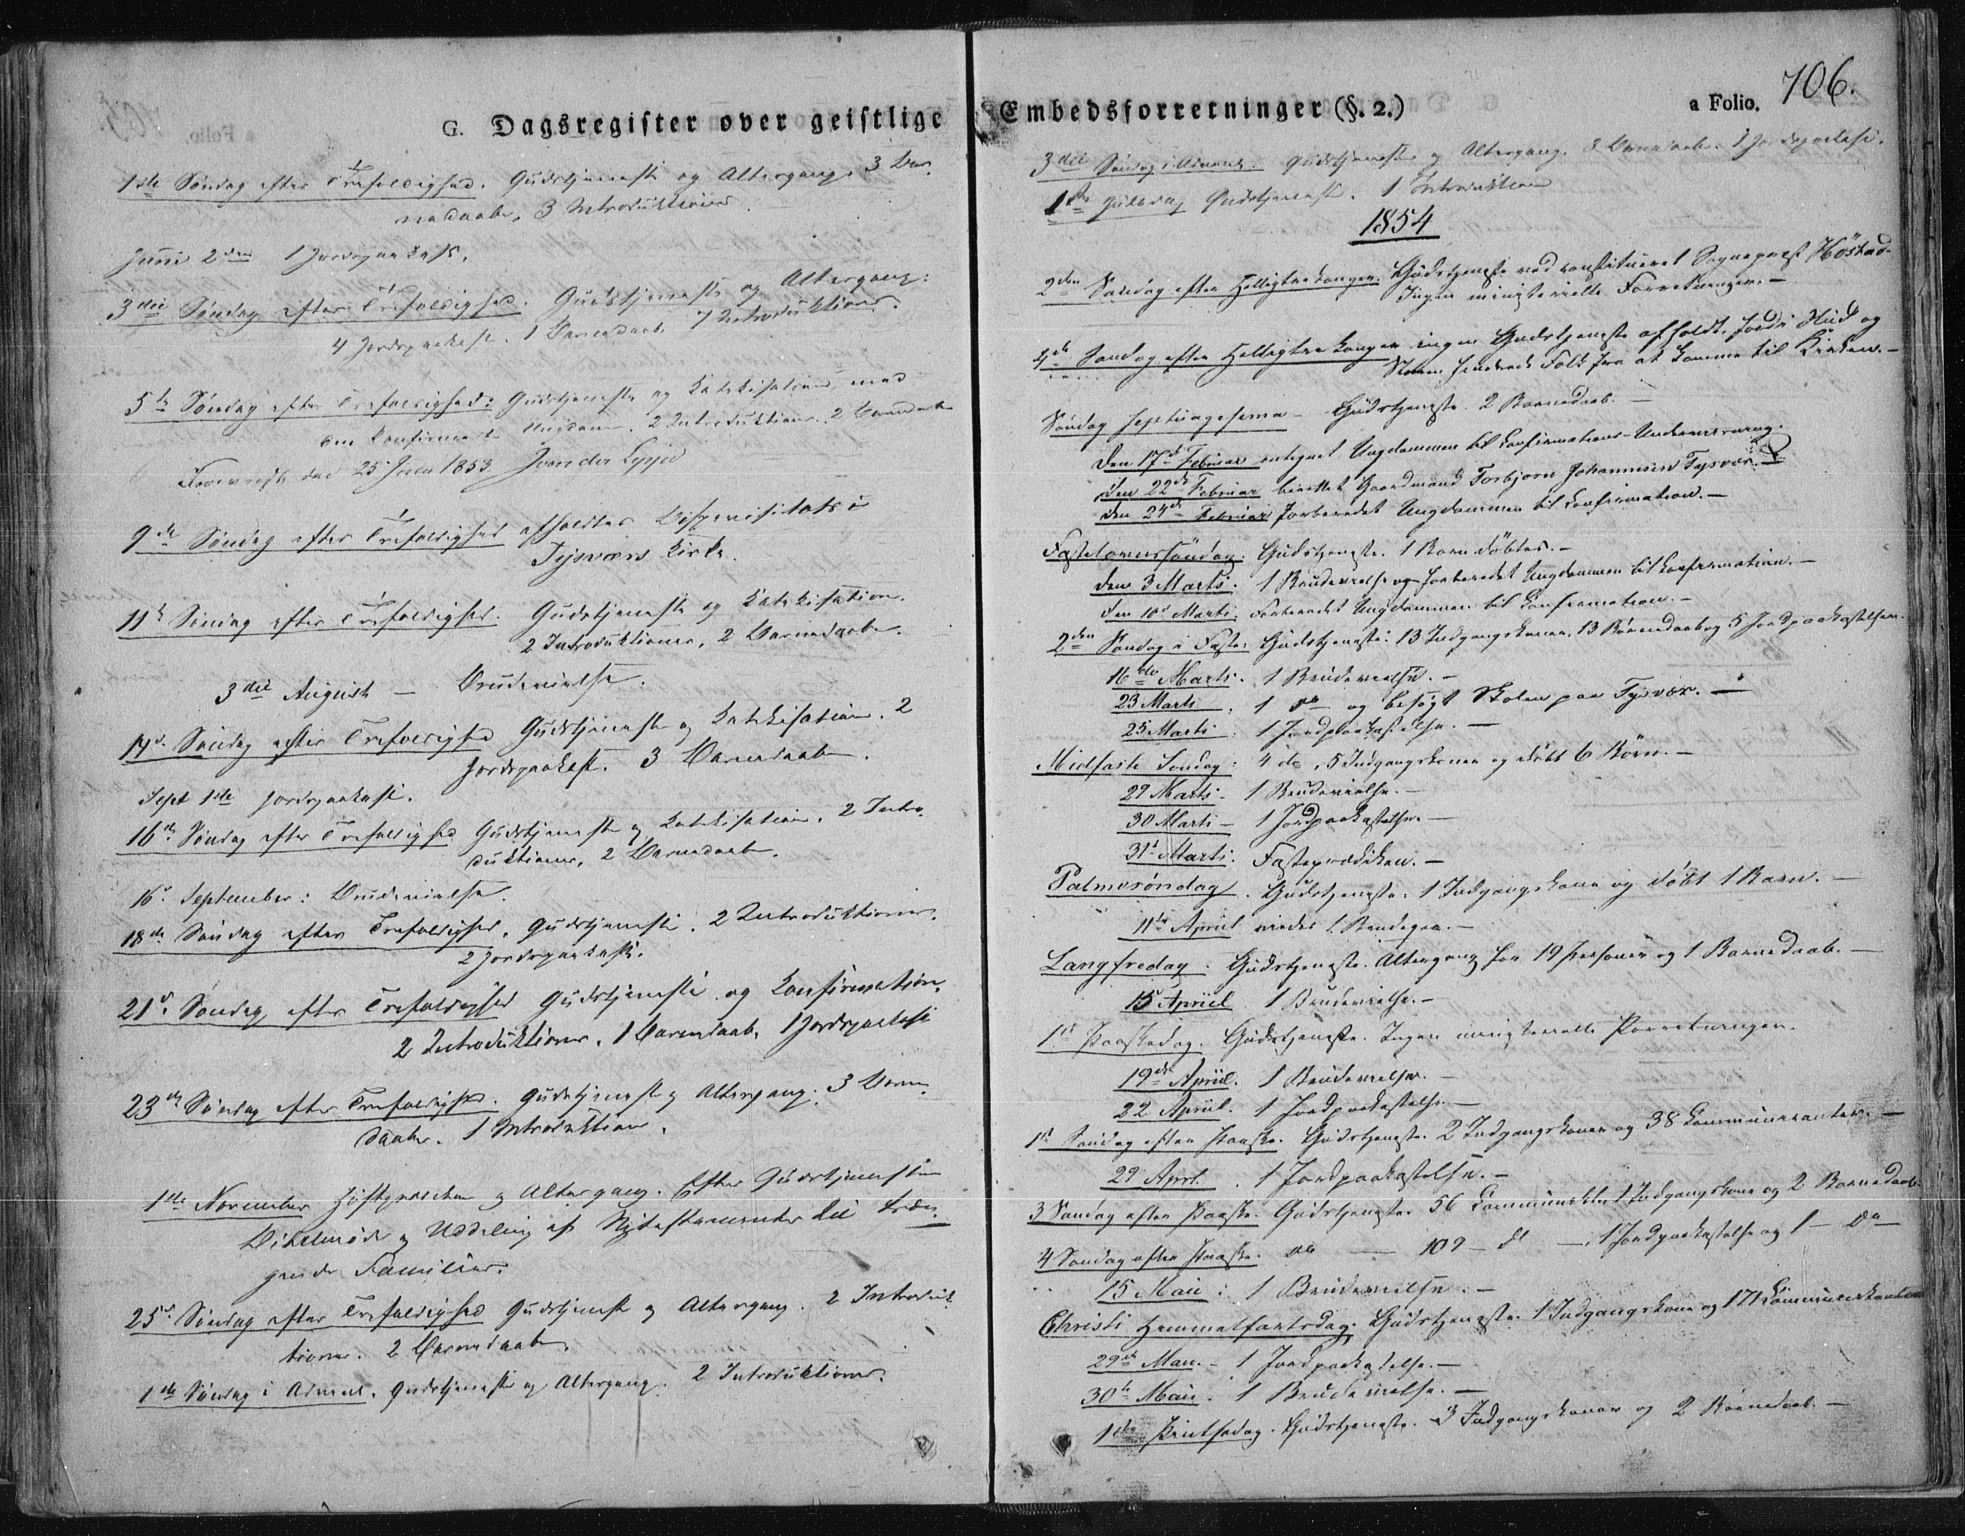 G. Dagsregister over geistlige
1ste Søndag efter Trefoldighed. Gudstjeneste og Altergang. 3 Bar-
nedaabe, 3 Introduktioner.
Juni 2den 1 Jordpaakast.
3die Søndag efter Trefoldighed. Gudstjeneste og Altergang:
4 Jordpaakast. 1 Barnedaab 7 Introduktioner.
5te Søndag efter Trefoldighed: Gudstjeneste og Katekisation med
den konfirmerte Ungdom. 2 Introduktioner. 2 Barnedaab
den 25 Juni 1853
9de Søndag efter Trefoldighed afholdtes Bispevisitats i
Tysværs Kirke.
11te Søndag efter Trefoldighed. Gudstjeneste og Katekisation.
2 Introduktioner, 2 Barnedaabe.
3die August — Brudevielse.
14d. Søndag efter Trefoldighed Gudstjeneste og Katekisation. 2
Jordpaakast. 3 Barnedaab.
Sept 1ste Jordpaakast.
16de Søndag efter Trefoldighed Gudstjeneste og Katekisation. 2 Intro-
duktioner, 2 Barnedaab.
16d September: Brudevielse.
18de Søndag efter Trefoldighed. Gudstjeneste. 2 Introduktioner.
2 Jordpaakast.
21d. Søndag efter Trefoldighed Gudstjeneste og Konfirmation.
2 Introduktioner. 1 Barnedaab, 1 Jordpaakast
23de Søndag efter Trefoldighed. Gudstjeneste og Altergang. 3 Barne-
daabe. 1 Introduktion.
1ste November Høstprædiken og Altergang. Efter Gudstjenesten
Bibelmøde og Uddeling af Nytestamenter til træn-
gende Familier.
25d. Søndag efter Trefoldighed Gudstjeneste og Altergang. 2 Introduk-
tioner. 2 Barnedaab.
1ste Søndag i Advent. Gudstjeneste og Altergang. 2 Introduktioner.
Embedsforretninger (§. 2.)
a Folio. 706.
3die Søndag i Advent. Gudstjeneste og Altergang. Barnedaab. 1 Jordpaakast.
1ste Juledag Gudstjeneste. 1 Introduktion
1854
2den Søndag efter Helligtrekonger. Gudstjeneste ved constitueret Sogneprest Höstad.
Ingen ministerielle Forretninger. —
4de Søndag efter Helligtrekonger ingen Gudstjeneste afholdt, fordi Vind og
Storm hindrede Folk fra at komme til Kirken. —
Søndag Septuagesima — Gudstjeneste. 2 Barnedaab. —
Den 17de Februar antegnet Ungdommen til Confirmations-Underviisning.
den 22de Februar berettet Gaardmand Torbjørn Johannesen Tysvær. —
den 24de Februar forberedet Ungdommen til Confirmation. —
Fastelavnssöndag: Gudstjeneste. 1 Barn döbtes. —
den 3 Marts: 1 Brudevielse og forberedet Ungdommen til Confirmation. —
den 10d Marts: Forberedet Ungdommen til Confirmation. —
2den Søndag i Faste: Gudstjeneste: 13 Indgangskoner, 13 Børnedaab og 5 Jordpaakastelser.
16de Marts. 1 Brudevielse. —
23 Marts. 1 do og besögt Skolen paa Tysvær. —
25 Marts: 1 Jordpaakastelse. —
Midfaste Søndag: 4 do, 5 Indgangskoner og döbt 6 Børn. —
29 Marts. 1 Brudevielse. —
30 Marts — 1 Jordpaakastelse. —
31d Marts: Fasteprædiken. —
Palmesøndag. Gudstjeneste. 1 Indgangskone og döbt 1 Barn. —
11te Apriil viedes 1 Brudepar. —
Langfredag. Gudstjeneste. Altergang for 19 personer og 1 Barnedaab. —
15 Apriil 1 Brudevielse. —
1ste Paaskedag. Gudstjeneste. Ingen ministerielle Forretninger.
19de Apriil. 1 Brudevielse. —
22 Apriil. 1 Jordpaakastelse. —
1ste Søndag efter Paaske. Gudstjeneste. 2 Indgangskoner og 38 Communicanter. —
29 Apr. 1 Jordpaakastelse. —
3 Søndag efter Paaske. Gudstjeneste. 56 1 Indgangskone og 2 Barnedaab.
4 Søndag efter Paaske. do — 109 — do —, 1 Jordpaakastelse og 1 — do
15 Mai: 1 Brudevielse. —
Christi Hemmelfartsdag. Gudstjeneste. 1 Indgangskone og 171 Communicanter
29de Mai. — 1 Jordpaakastelse. —
30te Mai. 1 Brudevielse. —
1ste Pintsedag. Gudstjeneste. 3 Indgangskoner og 2 Børnedaab. —